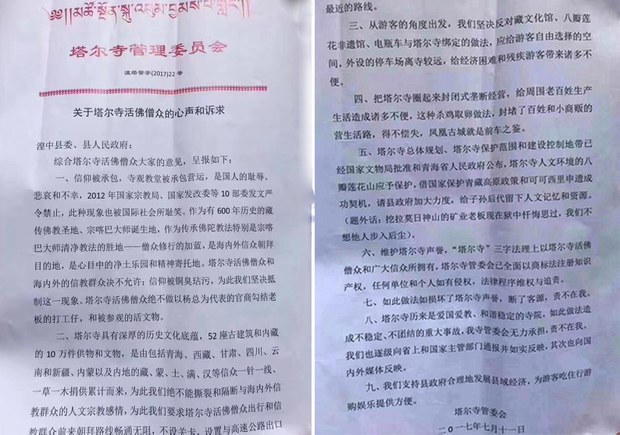 塔尔寺管理委员会
湟塔管字(2017)22号
关于塔尔寺活佛僧众的心声和诉求
湟中县委、县人民政府：
综合塔尔寺活佛僧众大家的意见，呈报如下：
一、信仰被承包，寺观教堂被承包营运，是国人的耻辱、
悲哀和不幸，2012年国家宗教局、国家发改委等10部委发文严
令禁止，此种现象也被国际社会所耻笑，作为有600年历史的藏
传佛教圣地、宗喀巴大师诞生地，作为传承佛陀教法特别是宗喀
巴大师清净教法的胜地——僧众修行的加蓝，是海内外信众朝拜
目的地，是心目中的净土乐园和精神寄托地。塔尔寺活佛僧众和
海内外的信教群众决不允许；信仰被铜臭玷污，为此我们坚决抵
制这一现象。塔尔寺活佛僧众绝不做以杨总为代表的官商勾结老
板的打工仔，和被参观的活文物。
二、塔尔寺具有深厚的历史文化底蕴，52座古建筑和内藏
的10万件供物和文物，是由包括青海、西藏、甘肃、四川、云
南和新疆、内蒙以及内地的藏、蒙、土、满、汉等信众一针一线，
一草一木捐供累计而来，为此我们绝不能撕裂和隔断与海内外信
教群众的人文宗教感情，为此我们要求塔尔寺活佛僧众出行和信
教群众前来朝拜路线畅通无阻，不设关卡，设置与高速公路出口
最近的路线。
三、从游客的角度出发，我们坚决反对藏文化馆、八瓣莲
花非遗馆、电瓶车与塔尔寺绑定的做法，应给游客自由选择的空
间，外设的停车场离寺较远，给经济困难和残疾游客带来诸多不
便。
四、把塔尔寺圈起来封闭式垄断经营，给周围老百姓生产
生活造成诸多不便，这种杀鸡取卵做法，封堵了百姓和小商贩的
营生活路，得不偿失，凤凰古城就是前车之鉴。
五、塔尔寺总体规划、塔尔寺保护范围和建设控制地带已
经国家文物局批准和青海省人民政府公布，塔尔寺人文环境的八
瓣莲花山应予保护，借国家保护青藏高原政策和可可西里申遗成
功契机，请县政府加大力度，给子孙后代留下人文记忆和资源。
（题外话：挖拉莫日神山的矿业老板现在狱中忏悔思过，我们不
想他人步入后尘）。
六、维护塔尔寺声誉，“塔尔寺”三字法理上以塔尔寺活佛
僧众和广大信众所拥有，塔尔寺管委会已全面以商标法注册知识
产权，任何单位和个人如有侵权，法律程序维权与追责。
七、如此做法如损坏了塔尔寺声誉，断了客源，责不在我。
八、塔尔寺历来是爱国爱教、和谐稳定的寺院，如此做法造
成不稳定、不团结的重大事故，我寺管委会无力承担，责不在我，
我们也逐级向省上和国家主管部门通报并如实反映，其次也向国
内外媒体反映。
九、我们支持县政府合理地发展县域经济，为游客吃住行游
购娱乐提供方便。
塔尔寺管委会
二〇一七年七月十一日